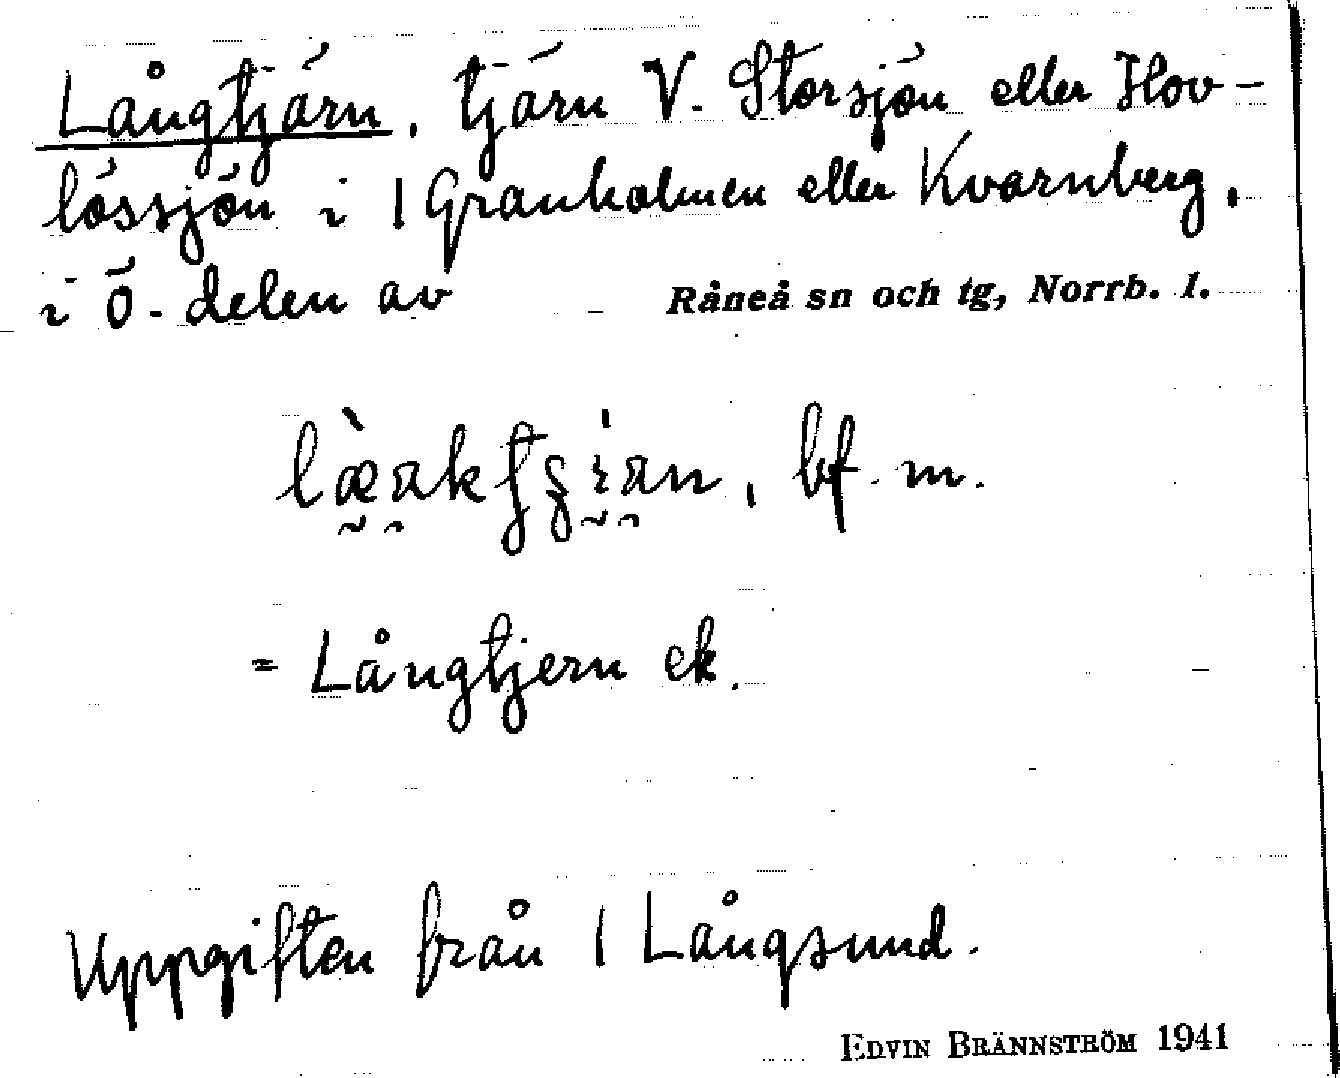 Långtjärn, tjärn V. Storsjön eller Hov-
lössjön i 1 Granholmen eller Kvarnberg,
i ö. delen av Råneå sn och tg, Norrb. l.
bf. m.
= Långtjern ek.
Uppgiften från 1 Långsund.
EDVIN BRÄNNSTRÖM 1941